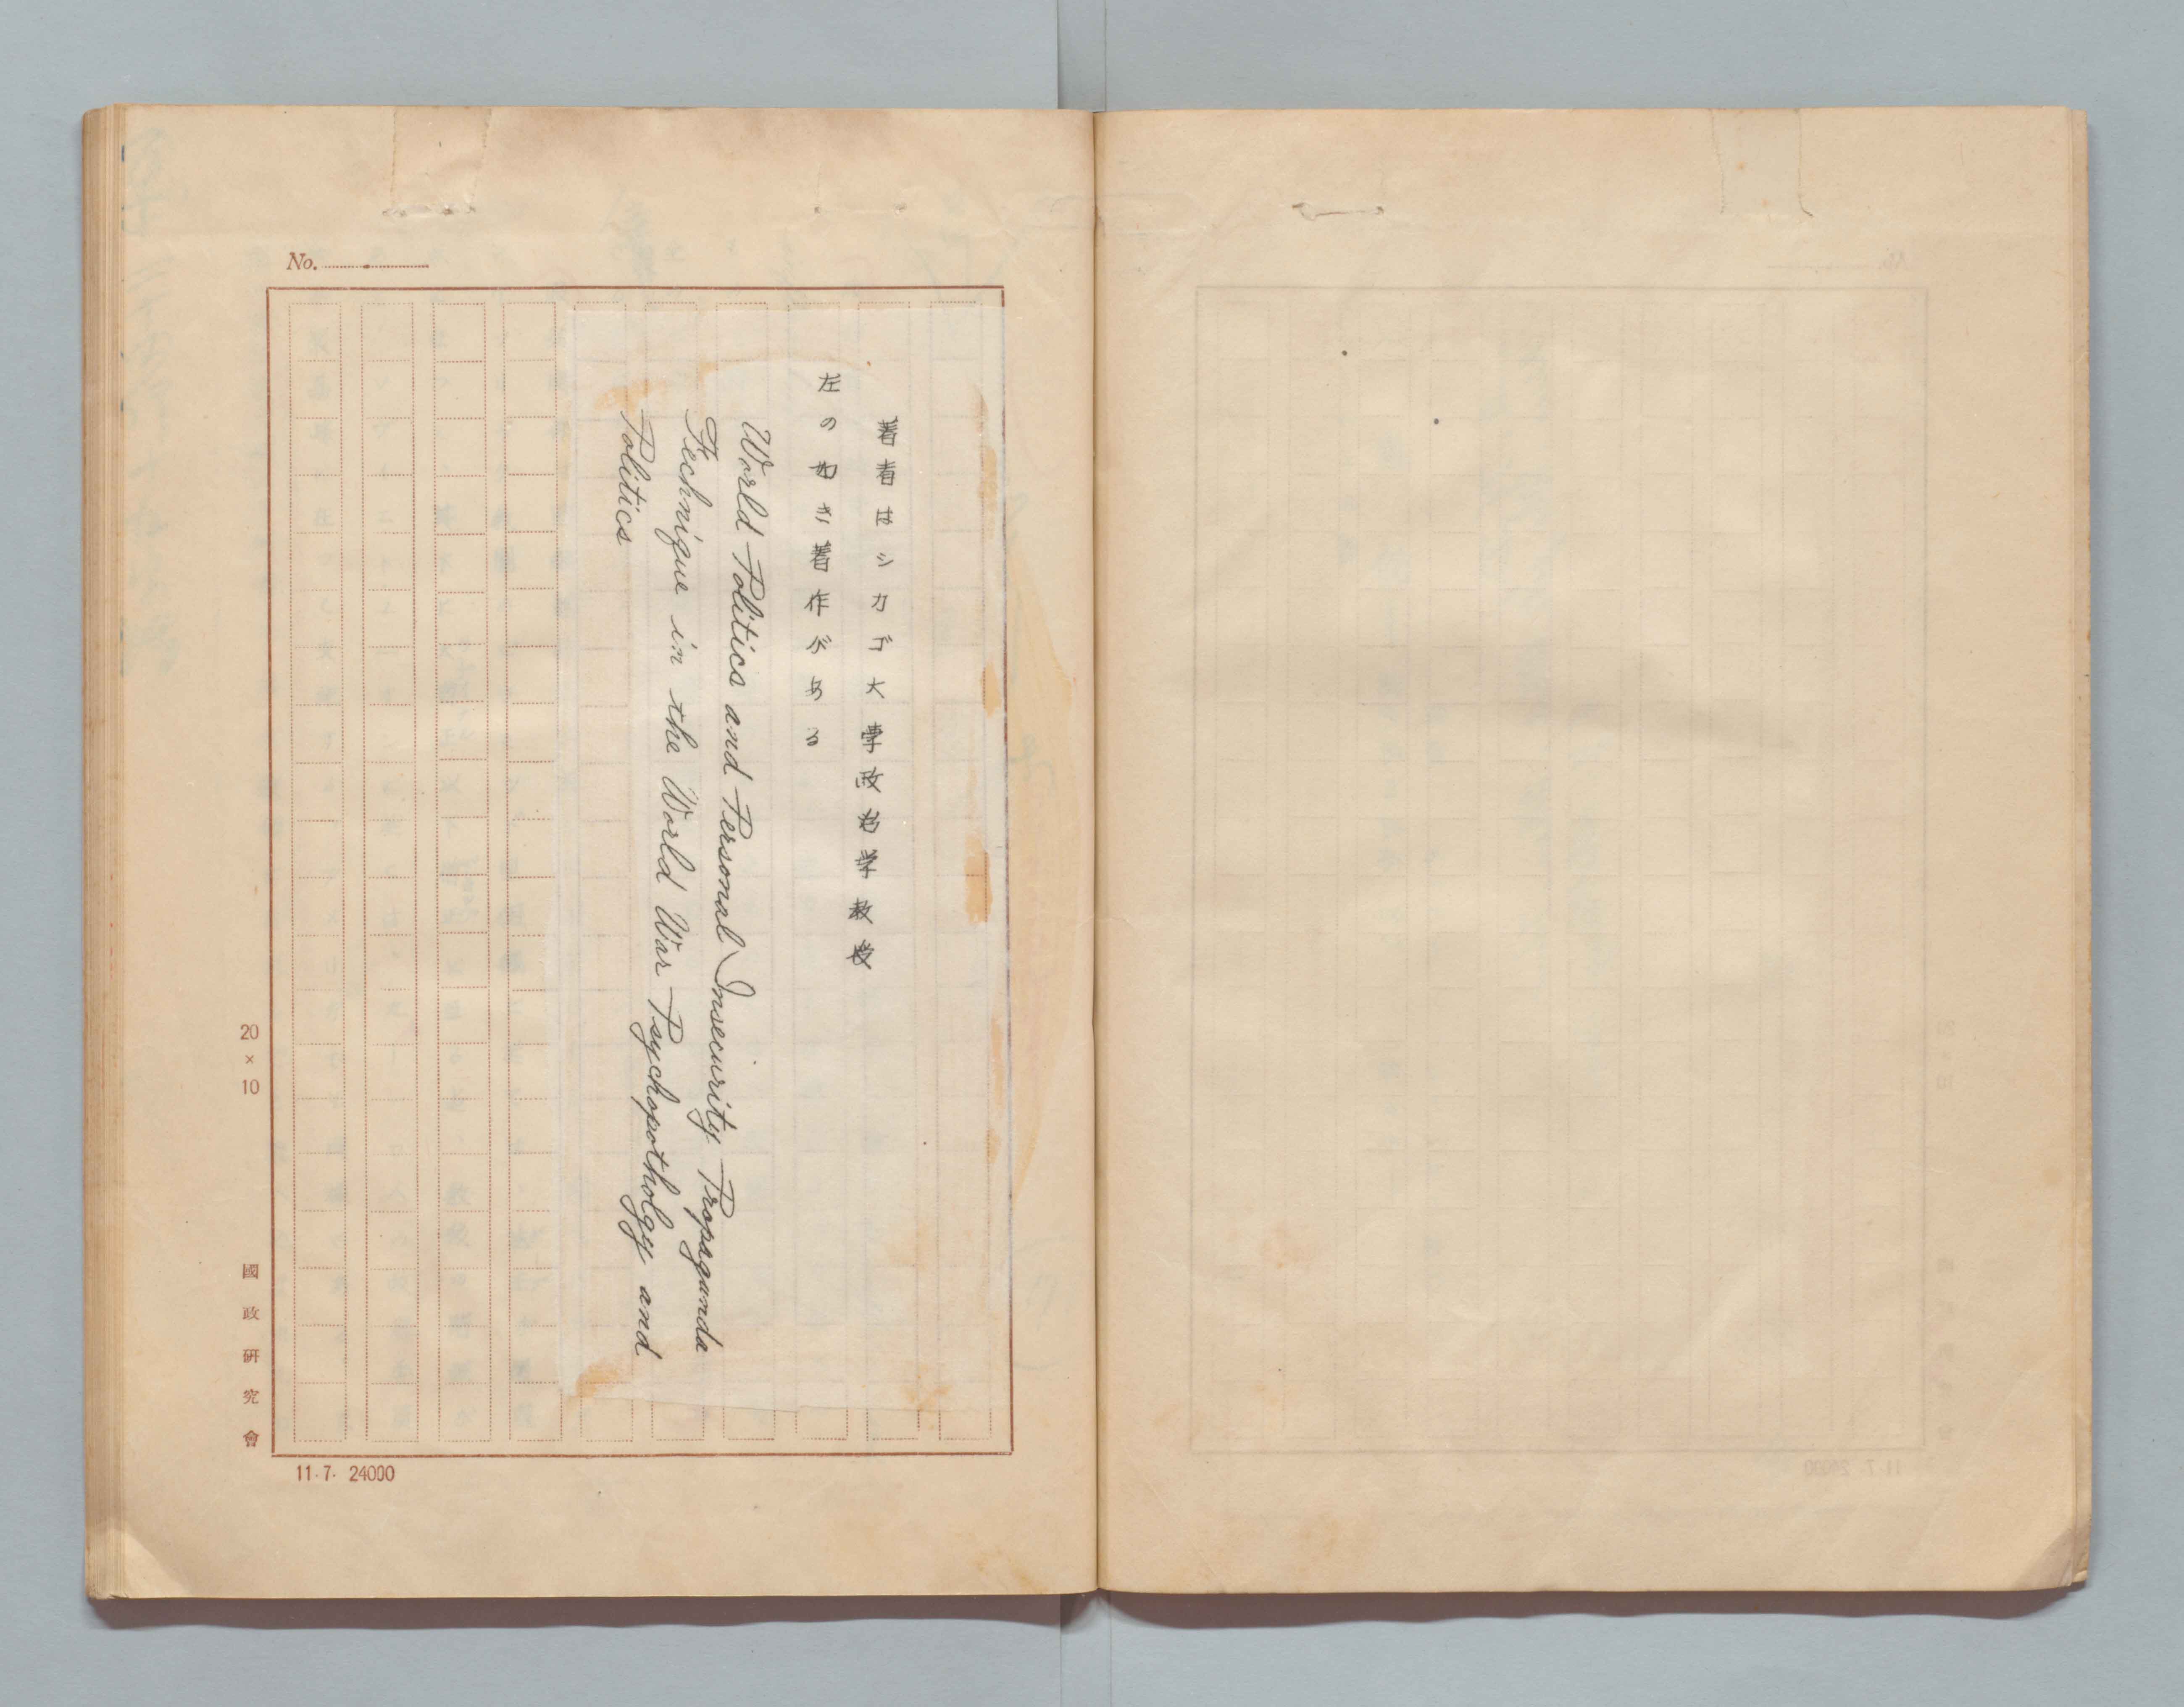 No.
著者はシカゴ大学政治学教授
左の如き著作がある
World Politics and Personal Insecurity Propaganda
Technique in the World War Psychopotholgy and
Politics
20×10
國政研究會
11.7. 24000